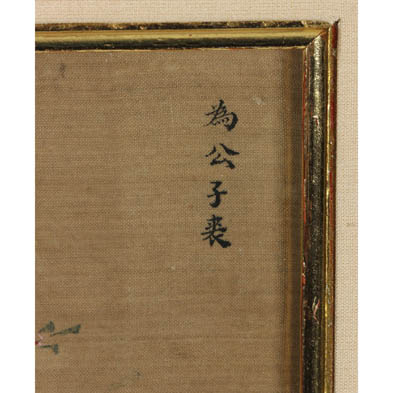 為公子裘